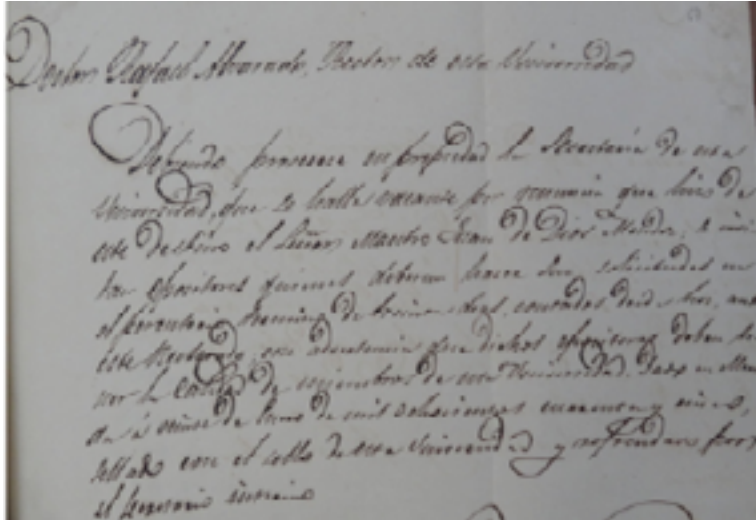 Doctor Rafael Alvarado, Rector de esta Universidad
Debiendo proveerse en propiedad la Secretaría de esta
Universidad, que se halla vacante por renuncia que hizo de
este destino el Señor Maestro Juan de Dios
opositores quienes deberán hacer sus solicitudes en
el perentorio término de treinta días, contados desde hoy, ante
este Rectorado, con advertencia que dichos opositores deben
la calidad de miembros de esta Universidad. Dado en
de mil ochocientos cuarenta y cinco,
sellado con el sello de esta Universidad y refrendado por
el Secretario interino